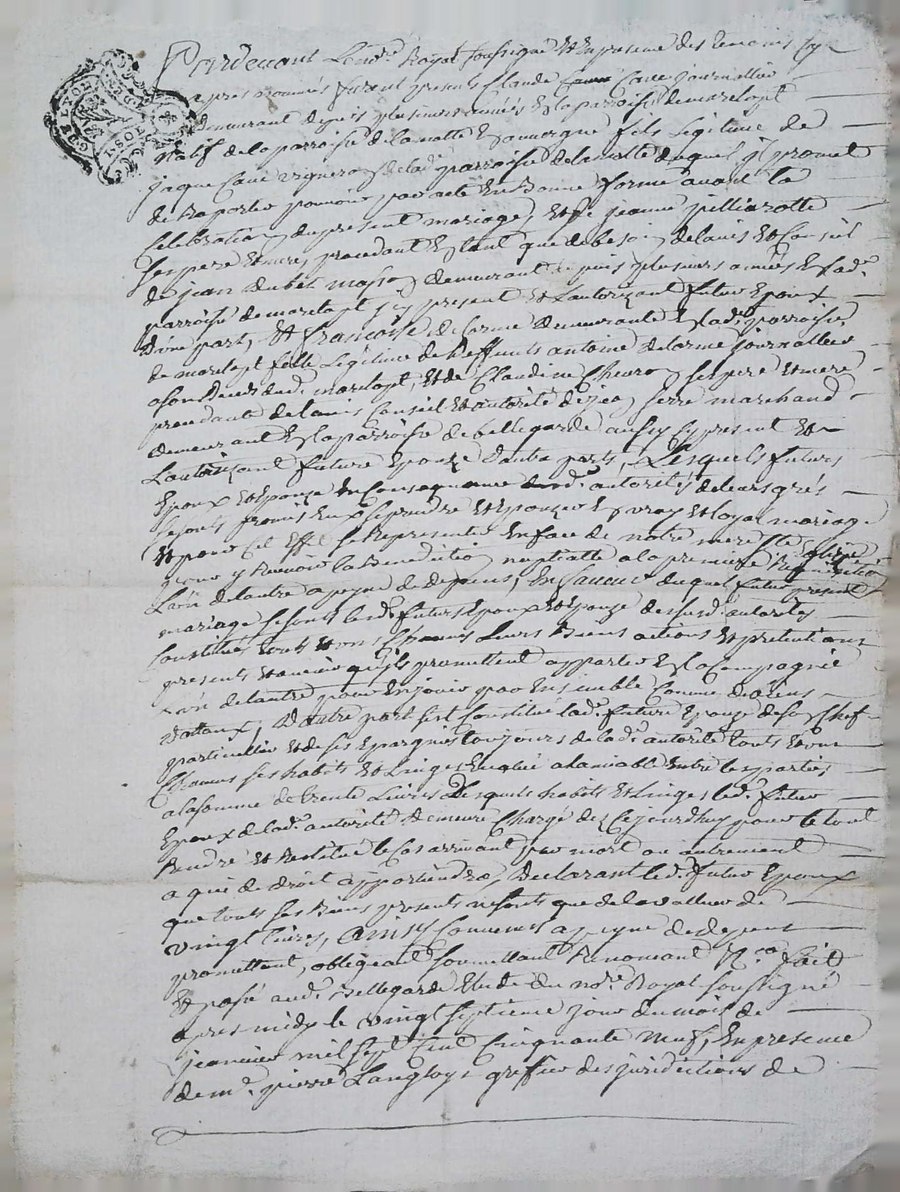 GEN. LYON
Pardevant Le no.re Royal soussigné Et En presence des temoins cy
apres nommés furent presents Claude Cave journallier
demeurant depuis plusieurs années En la parroisse de marclopt
natif de la parroisse de lamotte En auvergne fils Legitime de
jaque Cave vigneron de lad.e parroisse de lamotte duquel il promet
de Raporter pouvoir par acte En Bonne forme avant la
Celebration du present mariage, Et de jeanne
ses pere Et mere, procedant En tant que de besoin de lavis Et Conseil
de jean dubét masson demeurant depuis plusieurs années En lad.e
parroisse de marclopt icy present Et Lautorizant futur Epoux
d'une part, Et francoise delorme demeurante En lad.e parroisse
de marclopt fille Legitime de deffunts antoine delorme journallier
dud. marclopt, Et de Claudine ses pere Et mere
procedante de lavis Conseil Et autorité de serre marchand
demeurant En la parroisse de bellegarde aussy icy present Et
Lautorizant future Epouze dautre part, Lesquels futurs
Epoux Et Epouze En Consequence desd. autorités de leurs grés
se sont promis Eux se prendre Et Epouzer En vray Et loyal mariage
Et pour Cet Effet se Representer En face de notre mere S.te Eglise
pour y Recevoir la Benediction nuptialle a la premiere Requisition
Lun de lautre a peyne de depens, En faveur duquel futur present
mariage se sont lesd. futurs Epoux Et Epouze desusd. autorités
Constitués touts Et uns Chacuns Leurs Biens actions Et pretentions
presents Et avenir qu'ils promettent apporter En la Compagnie
Lun de lautre pour En jouir par Ensemble Comme de biens
dotaux, Dautre part s'est Constitué lad.e future Epouze de son Chef
particullier Et de ses Epargnes toujours de lad.e autorité touts Et uns
Chacuns ses habits Et Linges Evalué a lamiable Entre les parties
a la somme de trente Livres Desquels habits Et Linges led. futur
Epoux de lad.e autorité demeure Chargé dez Cejourdhuy pour le tout
Rendre Et Restitué le Cas arrivant par mort ou autrement
a qui de droit appartiendra, Declarant led. futur Epoux
que touts ses Biens presents ne sont que de la valleur de
vingt livres, Ainsy Convenus a peyne de depens
promettant, obligeant soumettant Renoncant &.a fait
Et passé aud. Bellegarde Etude du no.re Royal soussigné
apres midy le vingt septieme jour du mois de
janvier mil sept Cent Cinquante neuf, En presence
de m.e pierre Langlois greffier des juridictions de